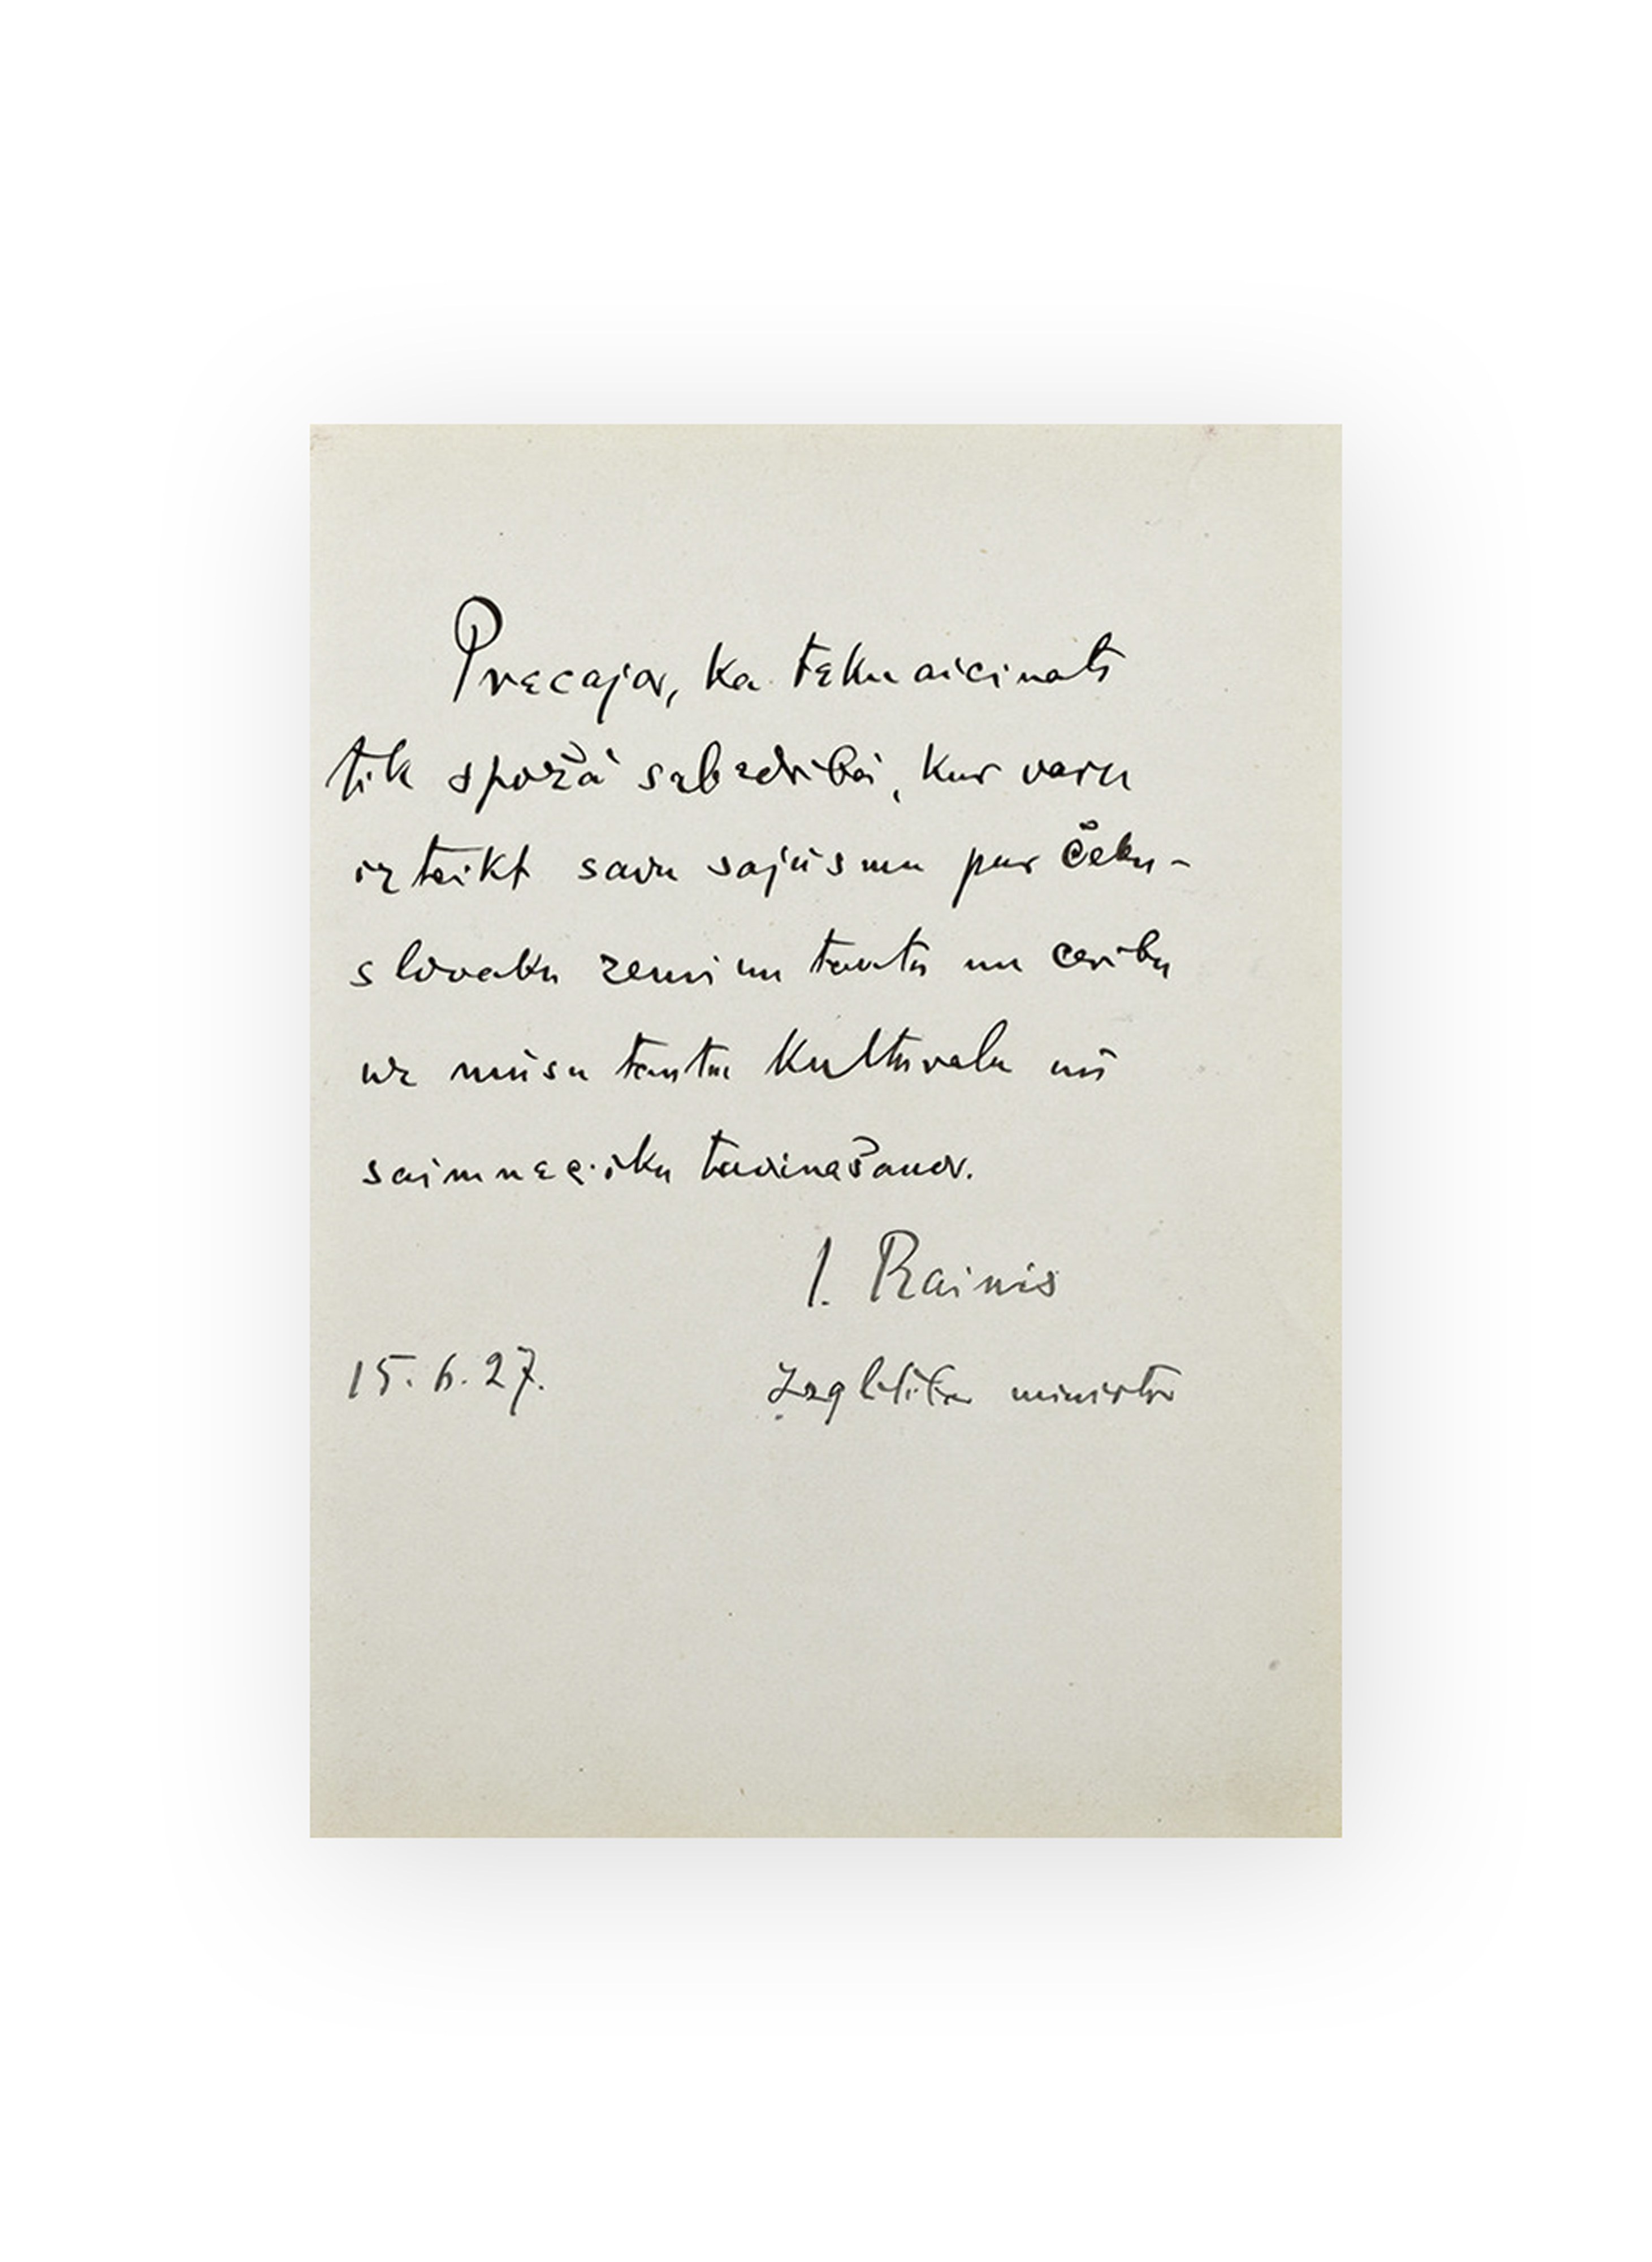 Prɛcajos, ka tɛku aicinats
tik spožā sabedribā, kur varu
izteikt savu sajūsmu par čeku-
slovaku zemi un tautu un ceribu
uz mūsu tautu kulturalu un
saimnɛcisku tuvinašanos.
J. Rainis
15.6.27. Izglitibas ministrs